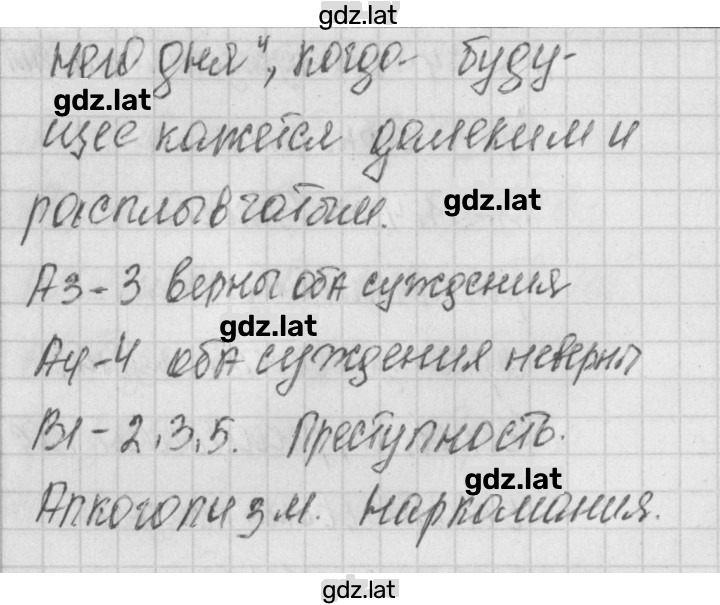 gdz.lat
него дня", когда буду-
gdz.lat
щее кажется далеким и
расплывчатым.
gdz.lat
А3-3 верны оба суждения
gdz.lat
А4-4 оба суждения неверны
В1-2,3,5. Преступность.
gdz.lat
Алкоголизм. Наркомания.
gdz.lat